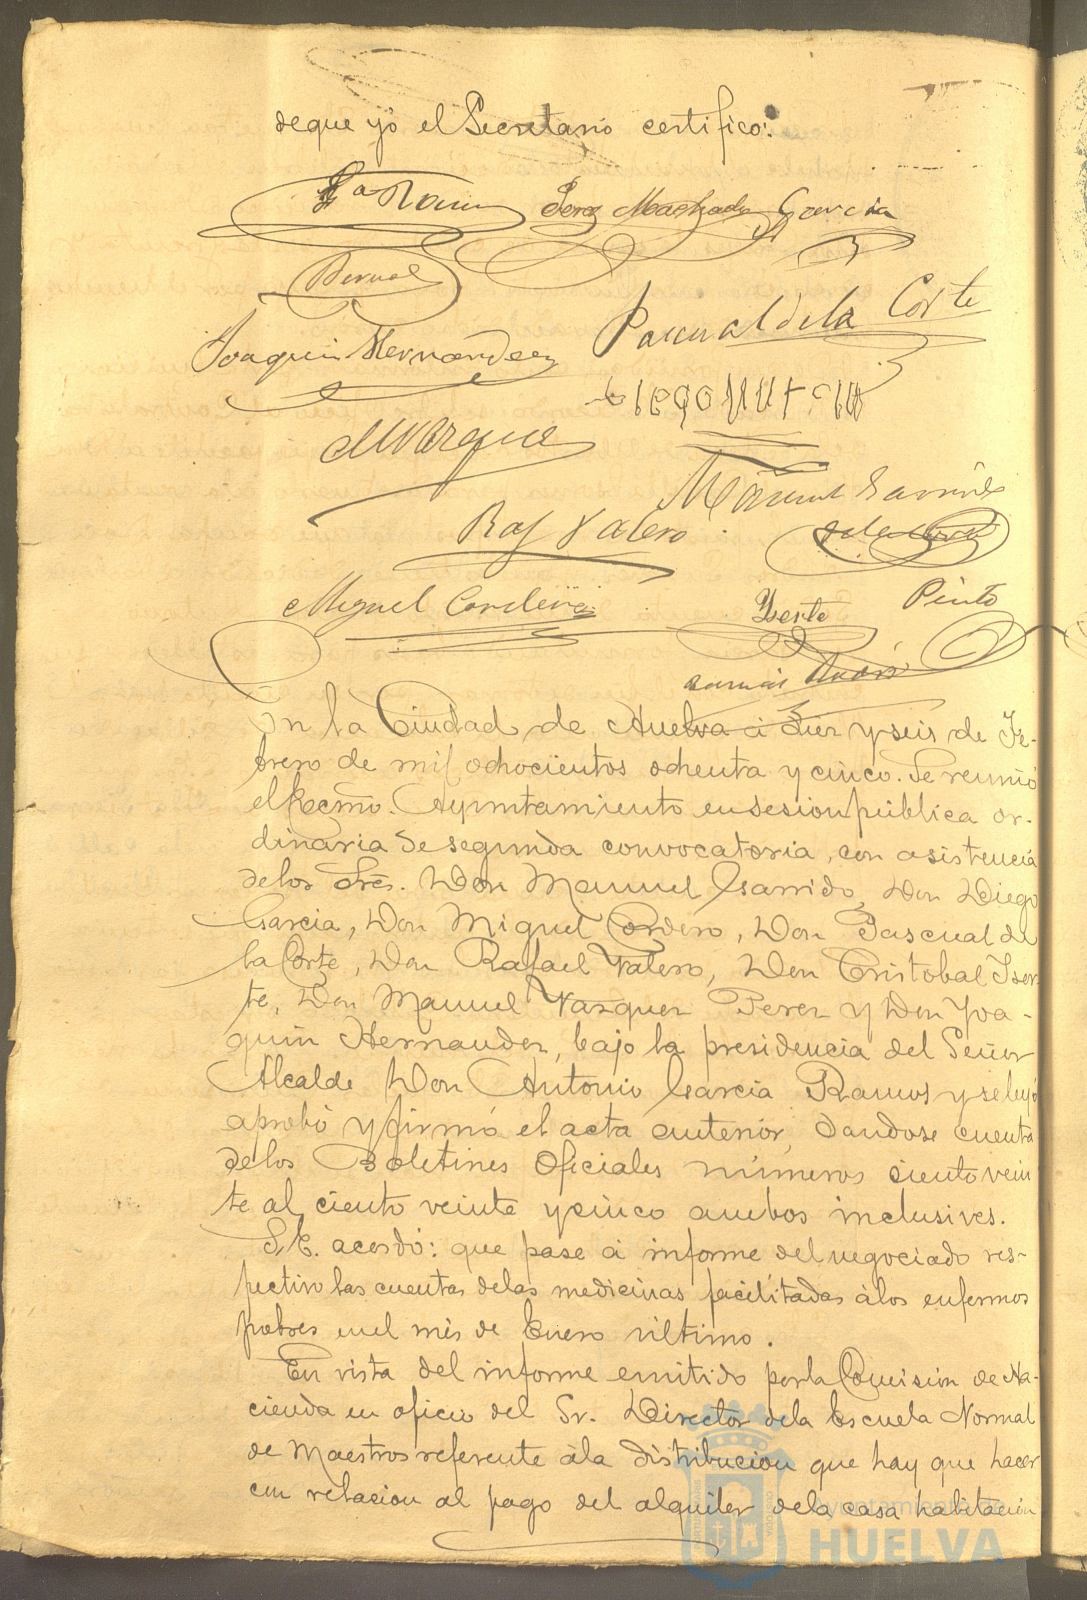 de que yó el Secretario certifico:
Ga Ramos Perez Machado Garcia
Bernal
Joaquin Hernandez Pascual de la Corte
MVazquez
Manuel Garrido
Raf Valero
Miguel Cordero Yserte Pinto
En la Ciudad de Huelva á diez y seis de Fe-
brero de mil ochocientos ochenta y cinco. Se reunió
el Excmo. Ayuntamiento en sesion pública or-
dinaria de segunda convocatoria, con asistencia
de los Sres. Don Manuel Garrido, Don Diego
Garcia, Don Miguel Cordero, Don Pascual de
la Corte, Don Rafael Valero, Don Cristobal Iser-
te, Don Manuel Vazquez Perez y Don Joa-
quin Hernandez, bajo la presidencia del Señor
Alcalde Don Antonio Garcia Ramos y se leyó
aprobó y firmó el acta anterior, dandose cuenta
de los Boletines Oficiales números ciento vein
te al ciento veinte y cinco ambos inclusives.
S.E. acordó: que pase á informe del negociado res-
pectivo las cuentas de las medicinas facilitadas á los enfermos
pobres en el mes de Enero último.
En vista del informe emitido por la Comision de Ha-
cienda en oficio del Sr. Director de la Escuela Normal
de Maestros referente á la distribucion que hay que hacer
con relacion al pago del alquiler de la casa habitacion
Ayuntamiento de
HUELVA